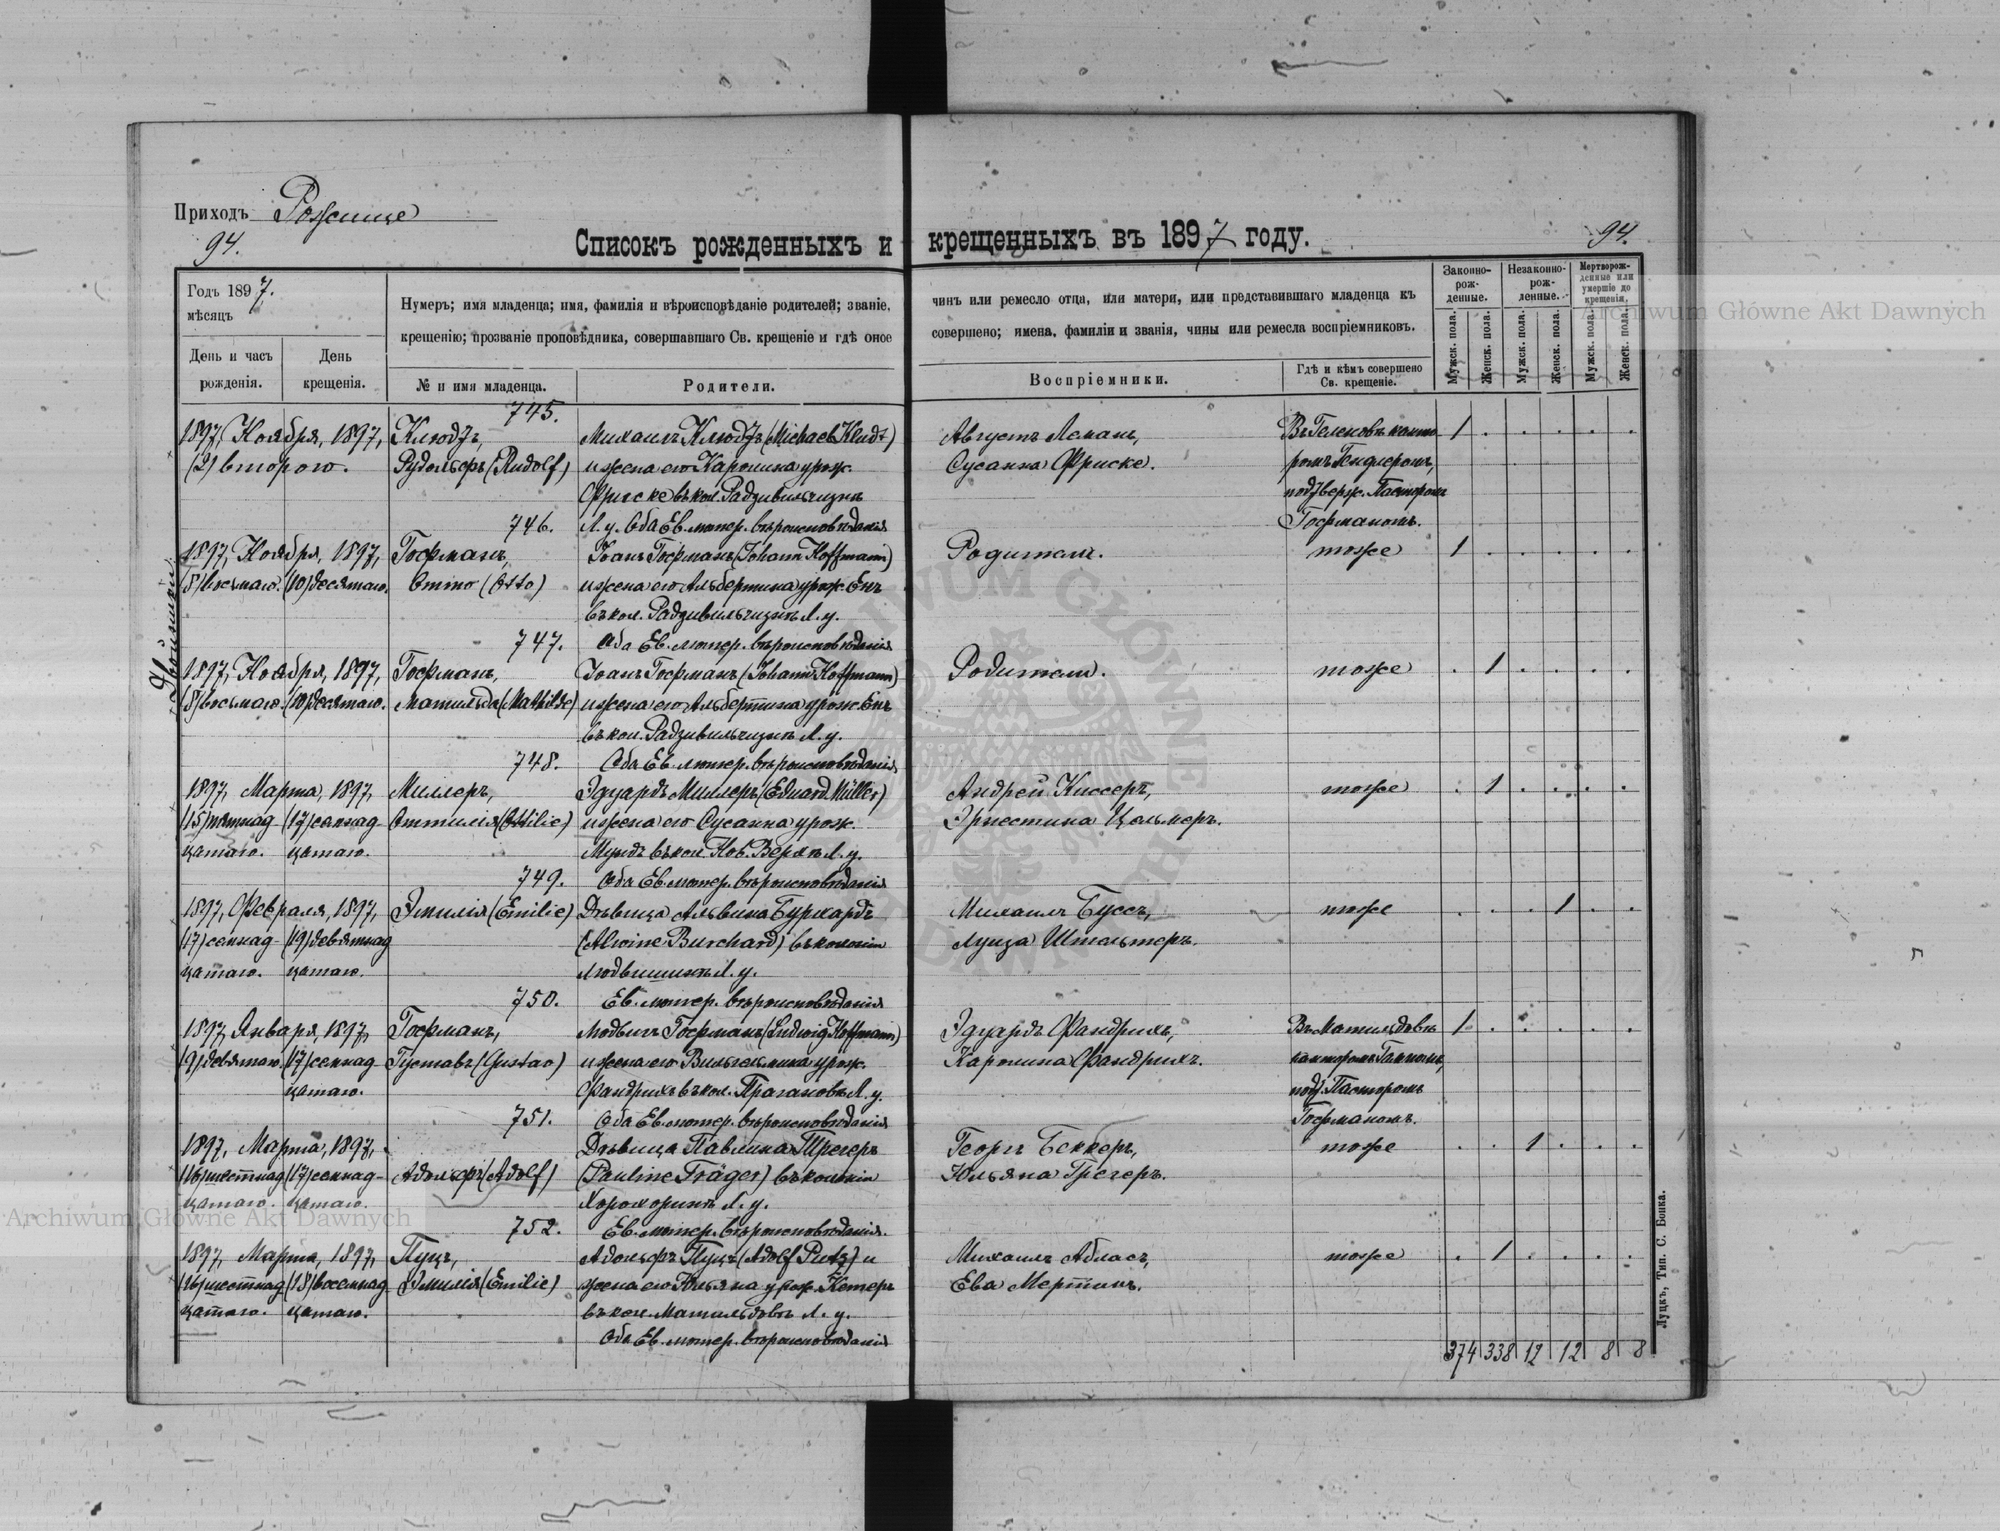 Приходъ Рожище
94.
Списокъ рожденныхъ и крещенныхъ въ 1897 году.
94.
Годъ 1897.
мѣсяцъ
День и часъ рожденія.
День крещенія.
Нумеръ; имя младенца; имя, фамилія и вѣроисповѣданіе родителей; званіе,
крещенію; прозваніе проповѣдника, совершавшаго Св. крещеніе и гдѣ оное
№ и имя младенца.
Родители.
чинъ или ремесло отца, или матери, или представившаго младенца къ
совершено; имена, фамиліи и званія, чины или ремесла воспріемниковъ.
Воспріемники.
Гдѣ и кѣмъ совершено Св. крещеніе.
Законно-рож-денные.
Незаконно-рож-денные.
Мертворож-денные или умершіе до крещенія.
Мужск. пола.
Женск. пола.
Мужск. пола.
Женск. пола.
Мужск. пола.
Женск. пола.
745.
1897, Ноября, 1897, Клюдъ, Михаилъ Клюдтъ (Michael Kludt) Августъ Леманъ, 1
(2) второго. Рудольфъ (Rudolf) и жена его Каролина урож. Сусанна Фриске.
Фриске въ кол. Радзивильчизнѣ подтверж. Пасторомъ
746. Л. у. Оба Ев. лютер. вѣроисповѣданія Гофманомъ.
1897, Ноября, 1897, Гофманъ, Іоанъ Гофманъ (Johann Hoffmann) Родители. тоже 1
(8) восьмаго. (10) десятаго. Отто (Otto) и жена его Альбертина урож. Енъ
въ кол. Радзивильчизнѣ Л. у.
747. Оба Ев. лютер. вѣроисповѣданія
Двойники
1897, Ноября, 1897, Гофманъ, Іоанъ Гофманъ (Johann Hoffmann) Родители. тоже 1
(8) восьмаго. (10) десятаго. Матильда (Mathilde) и жена его Альбертина урож. Енъ
въ кол. Радзивильчизнѣ Л. у.
748. Оба Ев. лютер. вѣроисповѣданія
1897, Марта, 1897, Миллеръ, Эдуардъ Миллеръ (Eduard Müller) Андрей Киссеръ, тоже 1
(15) пятнад- (17) семнад- Оттилія (Ottilie) и жена его Сусанна урож. Эрнестина Цельмеръ.
цатаго. цатаго. Мундъ въ кол. Нов. Л. у.
749. Оба Ев. лютер. вѣроисповѣданія
1897, Февраля, 1897, Эмилія (Emilie) Дѣвица Альвина Бурхардъ Михаилъ Буссъ, тоже 1
(17) семнад- (19) девятнад (Alwine Burchard) въ колоніи Луиза Штельтеръ.
цатаго. цатаго. Людвишинъ Л. у.
750. Ев. лютер. вѣроисповѣданія
1897, Января, 1897, Гофманъ, Людвигъ Гофманъ (Ludwig Hoffmann) Эдуардъ Фандрихъ, Въ Матильдовкѣ 1
(9) девятаго. (17) семнад Густавъ (Gustav) и жена его Вильгельмина урож. Каролина Фандрихъ.
цатаго. Фандрихъ въ кол. Л. у. Пасторомъ
751. Оба Ев. лютер. вѣроисповѣданія Гофманомъ.
1897, Марта, 1897, Дѣвица Павлина Трегеръ Георгъ Беккеръ, тоже 1
(16) шестнад (17) семнад- Адольфъ (Adolf) (Pauline Träger) въ колоніи Юльяна Трегеръ.
цатаго. цатаго. Хорохоринъ Л. у.
752. Ев. лютер. вѣроисповѣданія.
1897, Марта, 1897, Пуцъ, Адольфъ Пуцъ (Adolf Putz) и Михаилъ Абласъ, тоже 1
(16) шестнад (18) восемнад Эмилія (Emilie) жена его Юльяна урож. Кетеръ Ева Мертинъ.
цатаго. цатаго. въ кол. Матильдовкѣ Л. у.
Оба Ев. лютер. вѣроисповѣданія
374 338 12 12 8 8
Луцкъ, Тип. С. Бонка.
Archiwum Główne Akt Dawnych
Archiwum Główne Akt Dawnych